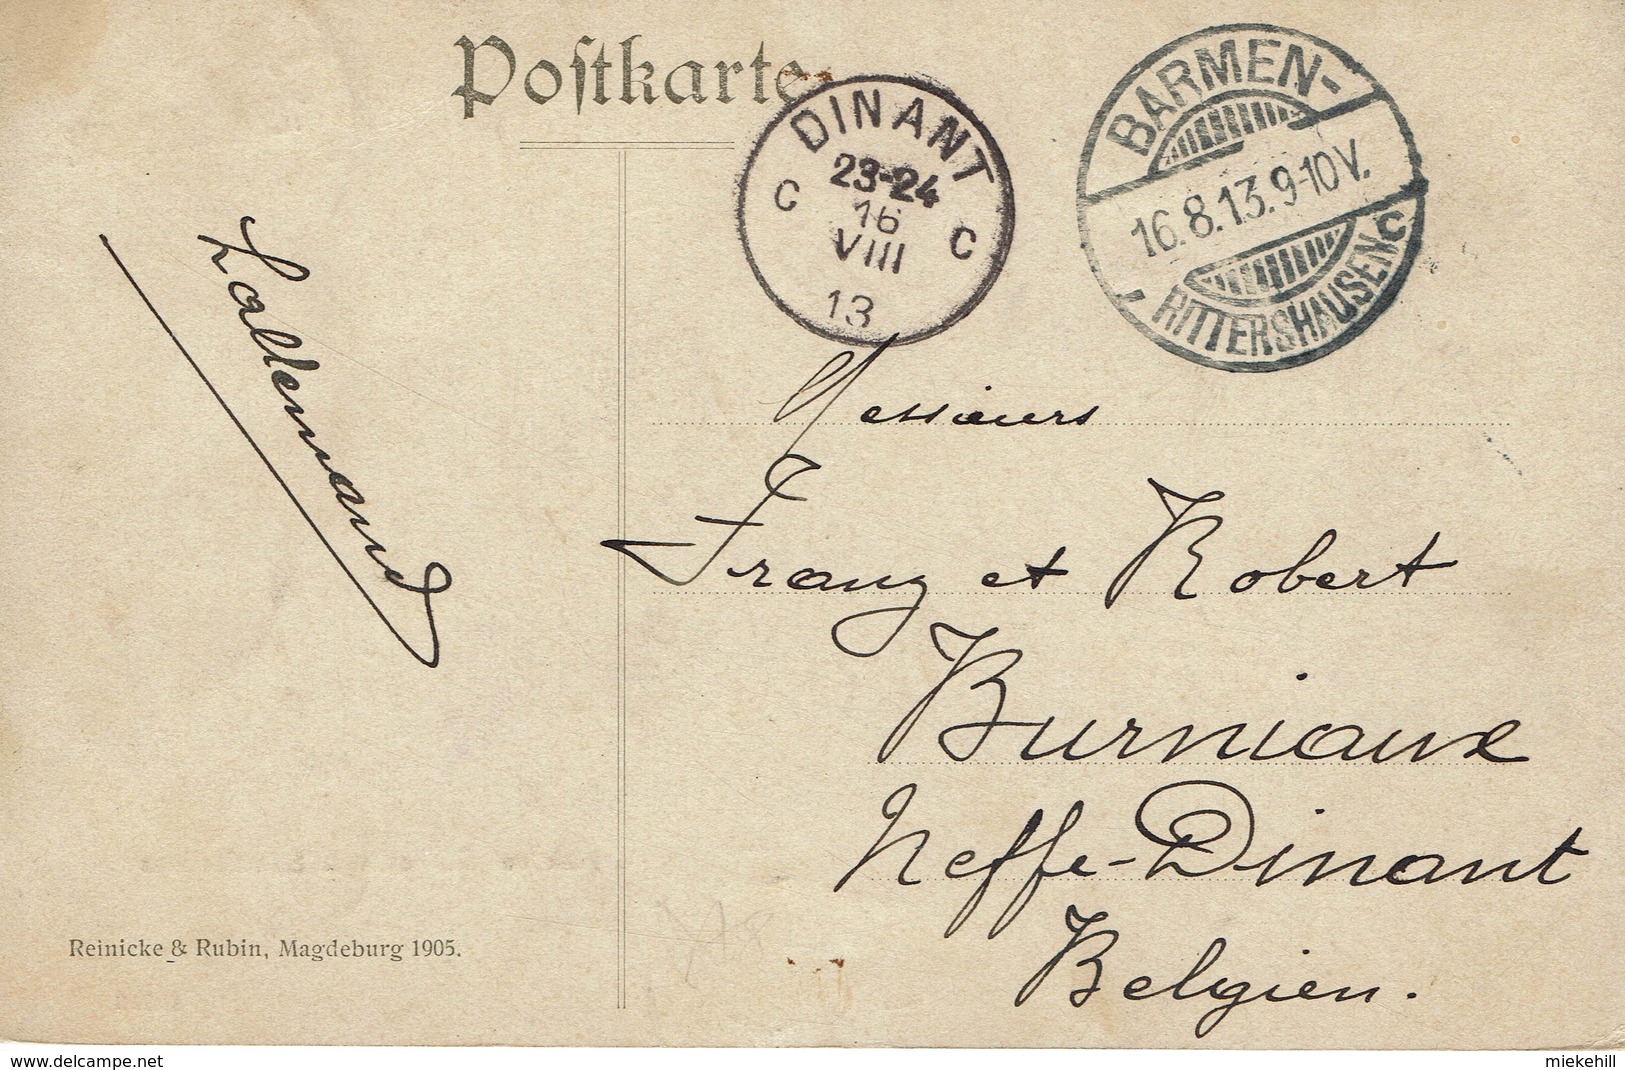 Postkarte
DINANT
23-24
C C
16
VIII
13
BARMEN-
16.8.13.9-10V.
RITTERSHAUSEN
C
Lallemand
Messieurs
Franz et Robert
Burniaux
Neffe-Dinant
Belgien.
Reinicke & Rubin, Magdeburg 1905.
www.delcampe.net
miekehill